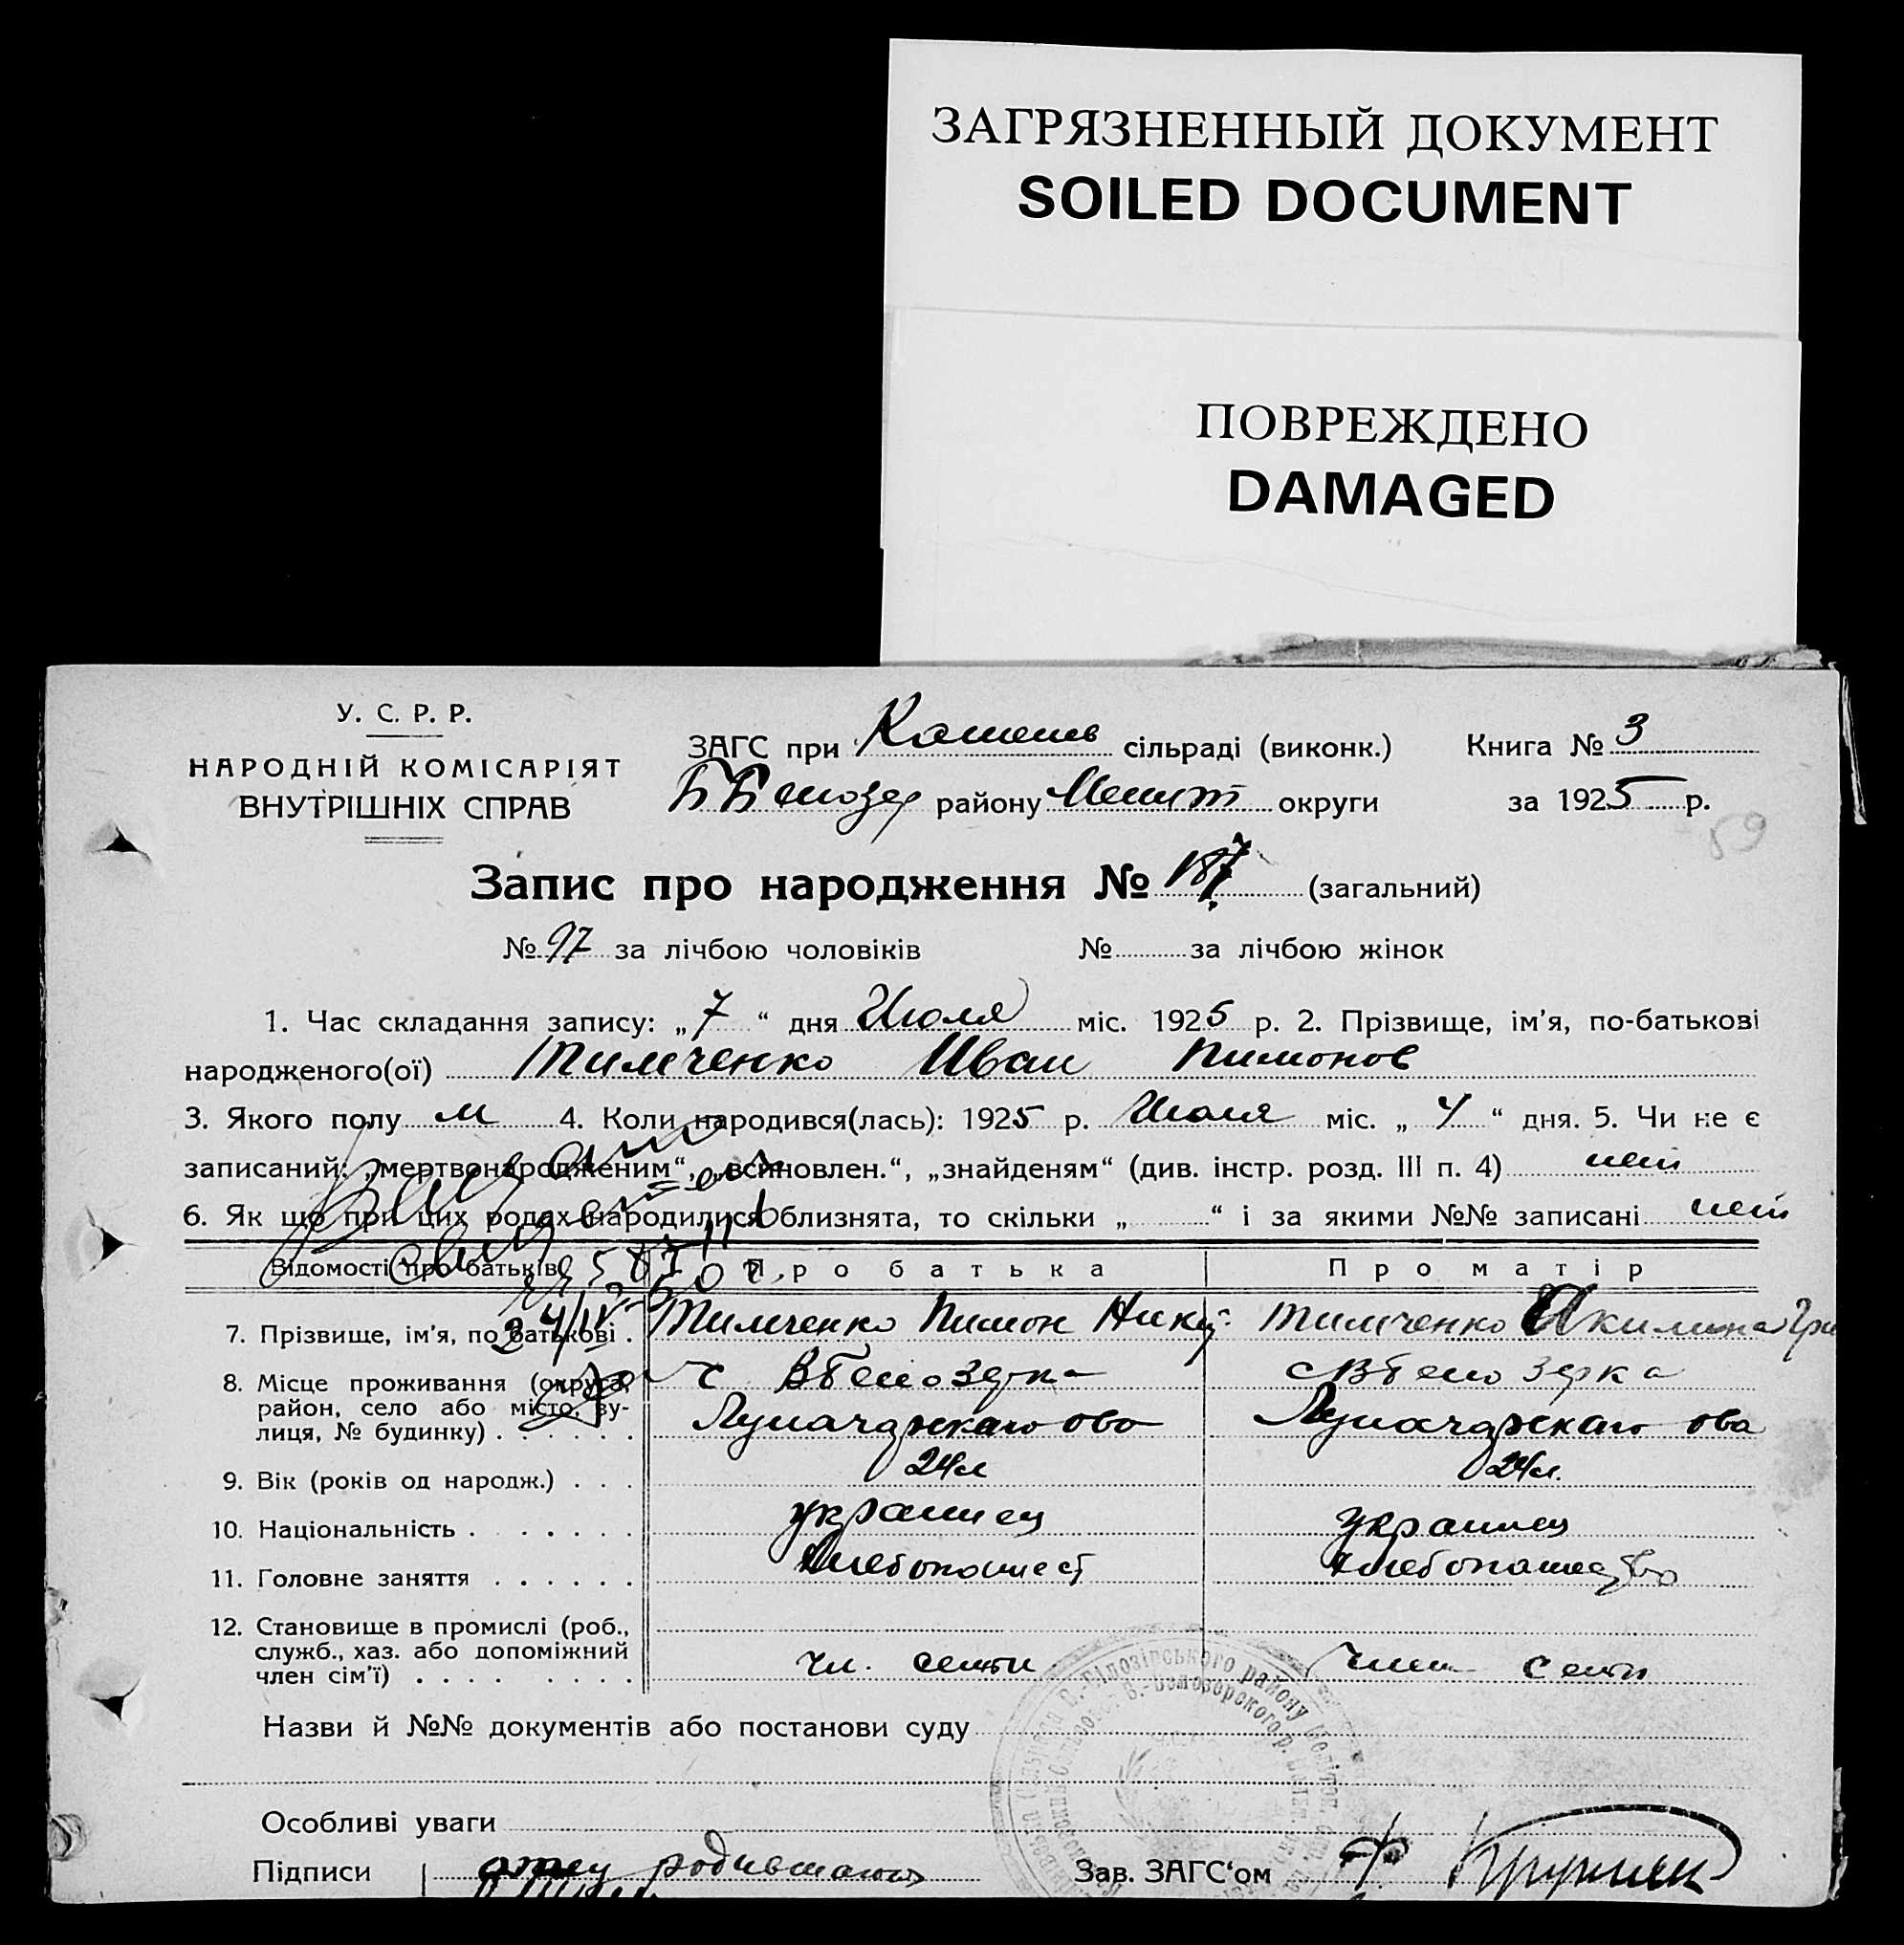 ЗАГРЯЗНЕННЫЙ ДОКУМЕНТ
SOILED DOCUMENT
ПОВРЕЖДЕНО
DAMAGED
У. С. Р. Р.
НАРОДНІЙ КОМІСАРІЯТ
ВНУТРІШНІХ СПРАВ
ЗАГС при сільраді (виконк.) Книга № 3
району Мелит округи за 1925 р.
59
Запис про народження № 187 (загальний)
№ 97 за лічбою чоловіків № за лічбою жінок
1. Час складання запису: „7“ дня Июля міс. 1925 р. 2. Прізвище, ім'я, по-батькові
народженого(ої) Тимченко Иван Пимонов
3. Якого полу м 4. Коли народився(лась): 1925 р. Июля міс. „4“ дня. 5. Чи не є
записаний: „мертвонародженим“, „всиновлен.“, „знайденям“ (див. інстр. розд. III п. 4) нет
6. Як що при цих родах народилися близнята, то скільки „ “ і за якими №№ записані нет
Відомості про батьків Про батька Про матір
7. Прізвище, ім'я, по батькові . Тимченко Пимон Тимченко Акилина Гри
8. Місце проживання (округа, с ВБелозерка с ВБелозерка
район, село або місто, ву-
лиця, № будинку) . . . . . . Луначарскаго ова Луначарскаго ова
9. Вік (років од народж.) . . . 24л 24л.
10. Національність . . . . . . . украинец украинец
11. Головне заняття . . . . . . хлебопашест хлебопашество
12. Становище в промислі (роб.,
служб., хаз. або допоміжний
член сім'ї) . . . . . . . . чл. семьи член семьи
Назви й №№ документів або постанови суду
Особливі уваги
Підписи отец Зав. ЗАГС'ом